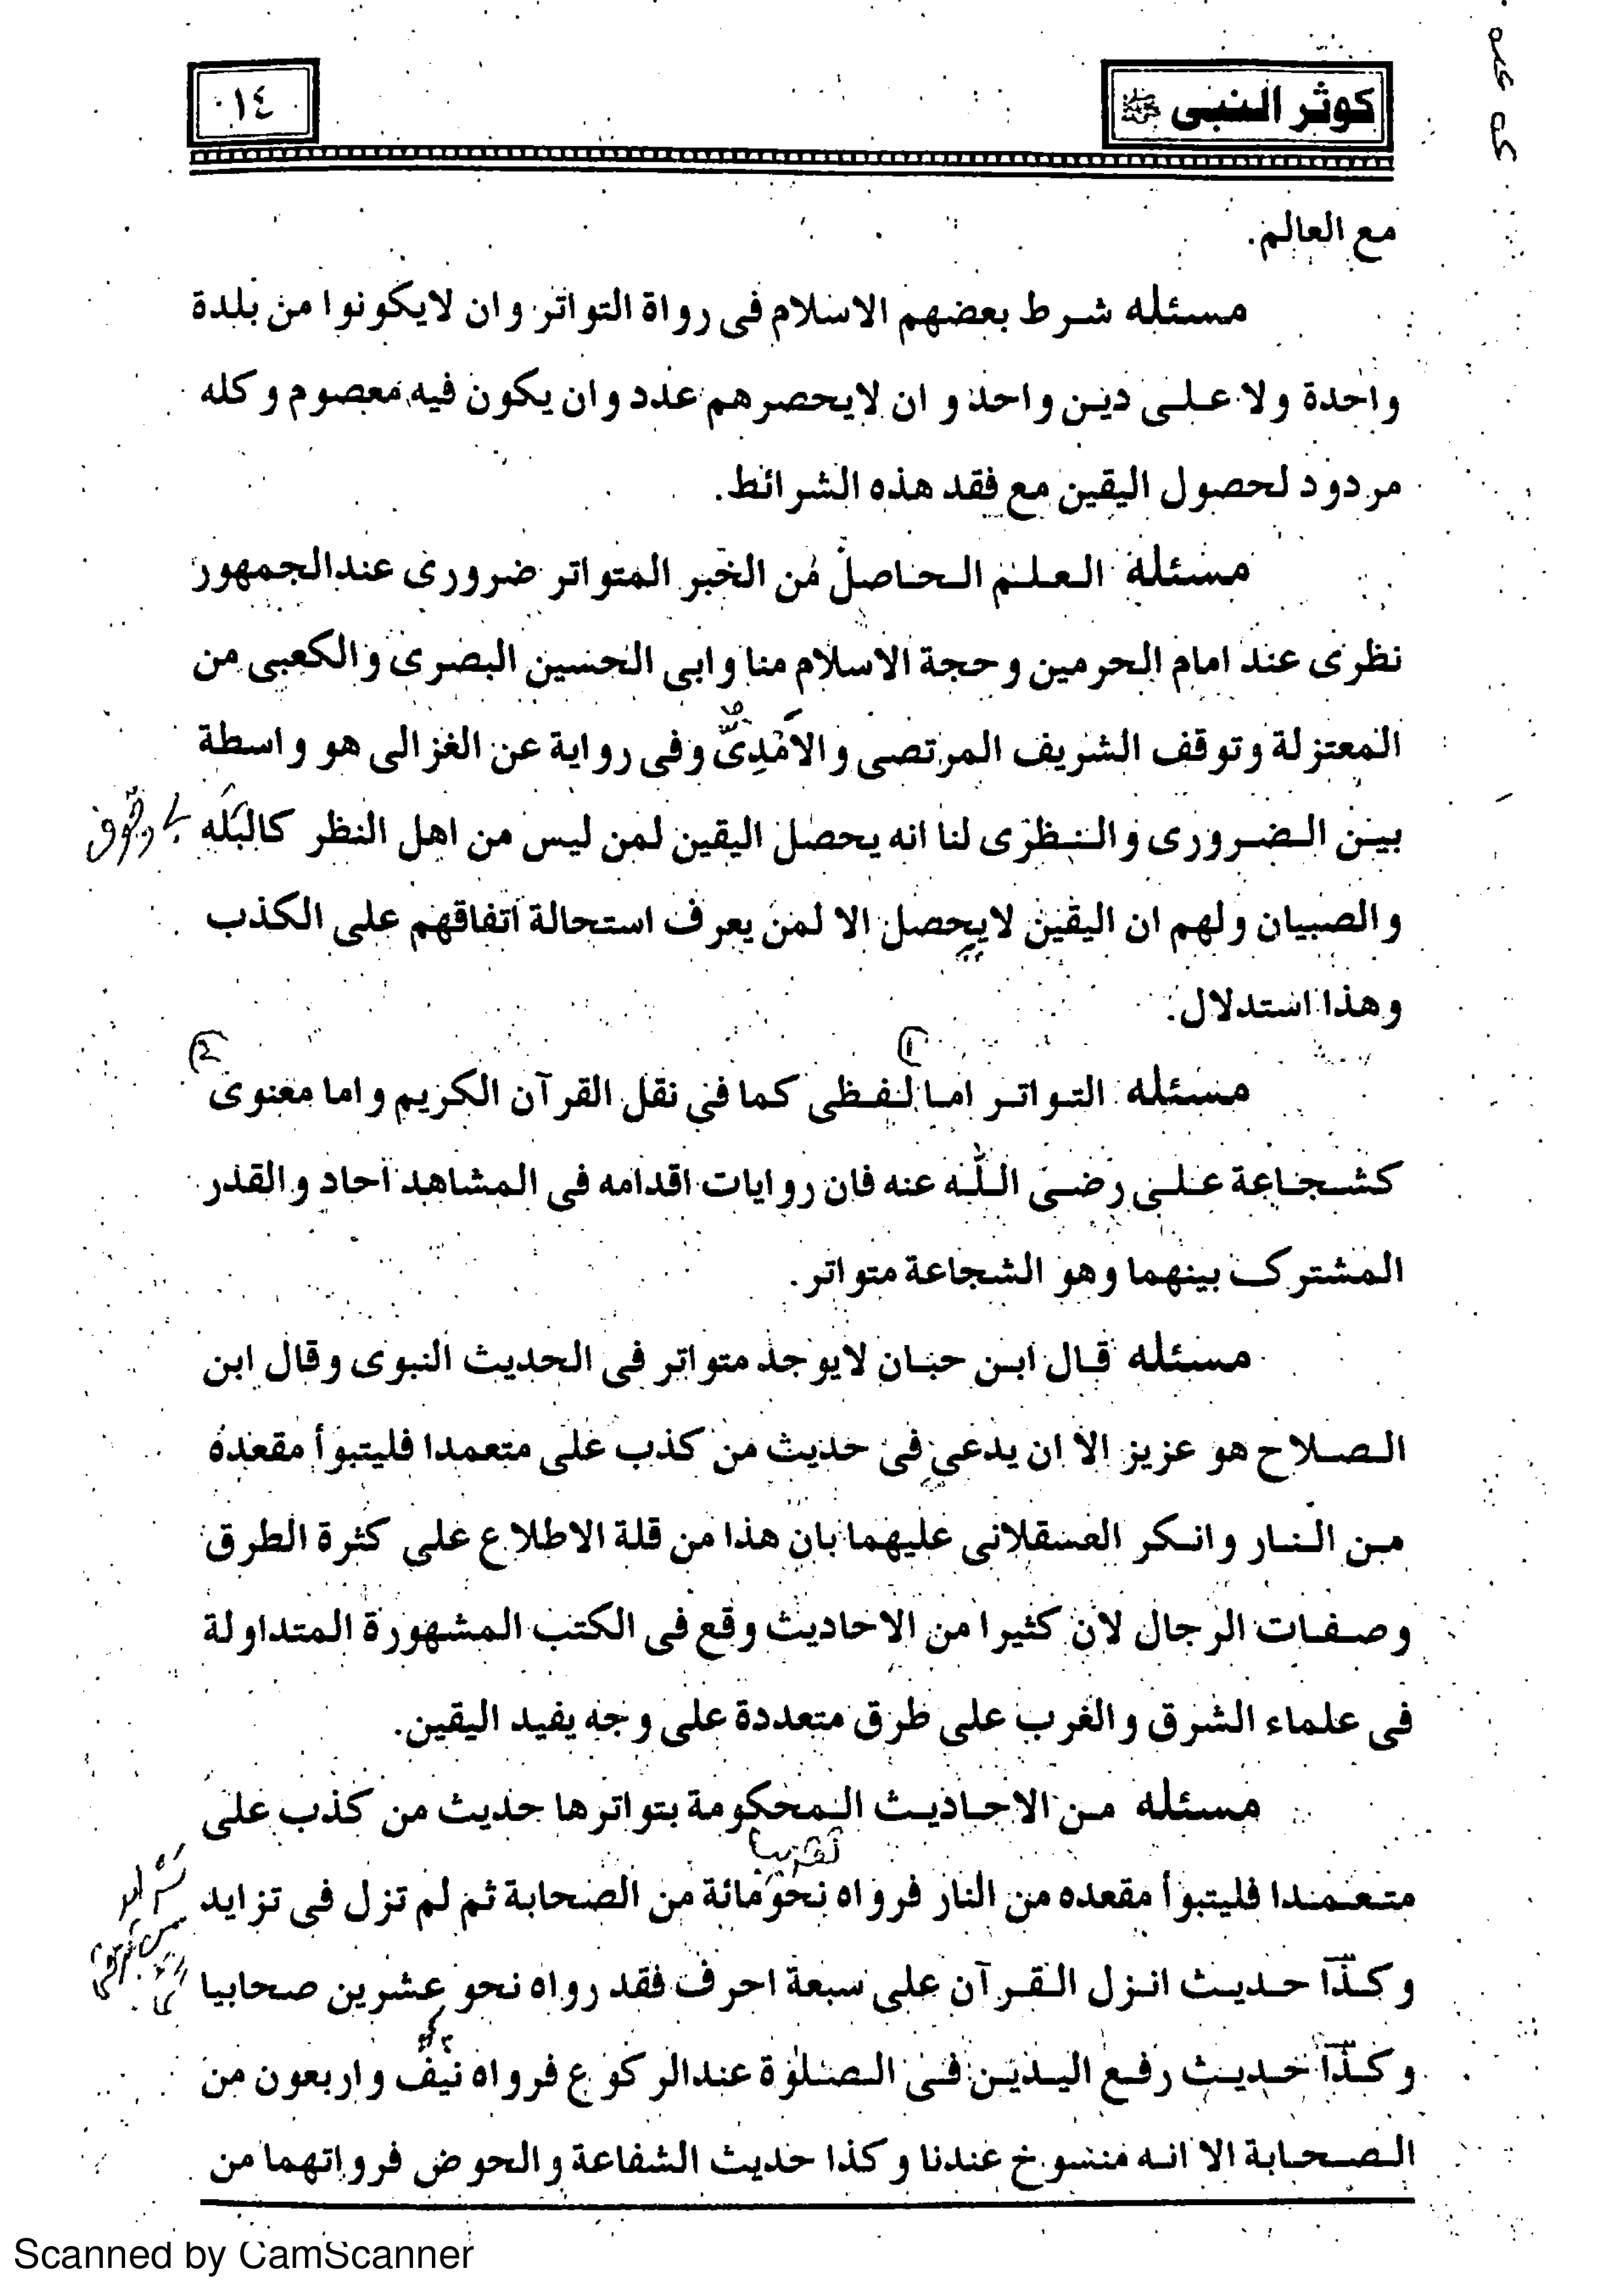 كوثر النبى ﷺ
١٤
مع العالم.
مسئله شرط بعضهم الاسلام فى رواة التواتر وان لايكونوا من بلدة
واحدة ولا على دين واحد و ان لايحصرهم عدد وان يكون فيه معصوم وكله
مردود لحصول اليقين مع فقد هذه الشرائط.
مسئلة العلم الحاصل من الخبر المتواتر ضرورى عندالجمهور
نظرى عند امام الحرمين وحجة الاسلام منا وابى الحسين البصرى والكعبى من
المعتزلة وتوقف الشريف المرتضى والآمدى وفى رواية عن الغزالى هو واسطة
بين الضرورى والنظرى لنا انه يحصل اليقين لمن ليس من اهل النظر كالبله
والصبيان ولهم ان اليقين لايحصل الا لمن يعرف استحالة اتفاقهم على الكذب
وهذا استدلال.
مسئله التواتر اما لفظى كما فى نقل القرآن الكريم واما معنوى
كشجاعة على رضى اللّٰه عنه فان روايات اقدامه فى المشاهد آحاد والقدر
المشترك بينهما وهو الشجاعة متواتر.
مسئله قال ابن حبان لايوجد متواتر فى الحديث النبوى وقال ابن
الصلاح هو عزيز الا ان يدعى فى حديث من كذب على متعمدا فليتبوأ مقعده
من النار وانكر العسقلانى عليهما بان هذا من قلة الاطلاع على كثرة الطرق
وصفات الرجال لان كثيرا من الاحاديث وقع فى الكتب المشهورة المتداولة
فى علماء الشرق والغرب على طرق متعددة على وجه يفيد اليقين.
مسئله من الاحاديث المحكومة بتواترها حديث من كذب على
تقريبا
متعمدا فليتبوأ مقعده من النار فرواه نحو مائة من الصحابة ثم لم تزل فى تزايد
وكذا حديث انزل القرآن على سبعة احرف فقد رواه نحو عشرين صحابيا
وكذا حديث رفع اليدين فى الصلوٰة عندالركوع فرواه نيف واربعون من
الصحابة الا انه منسوخ عندنا وكذا حديث الشفاعة والحوض فرواتهما من
Scanned by CamScanner